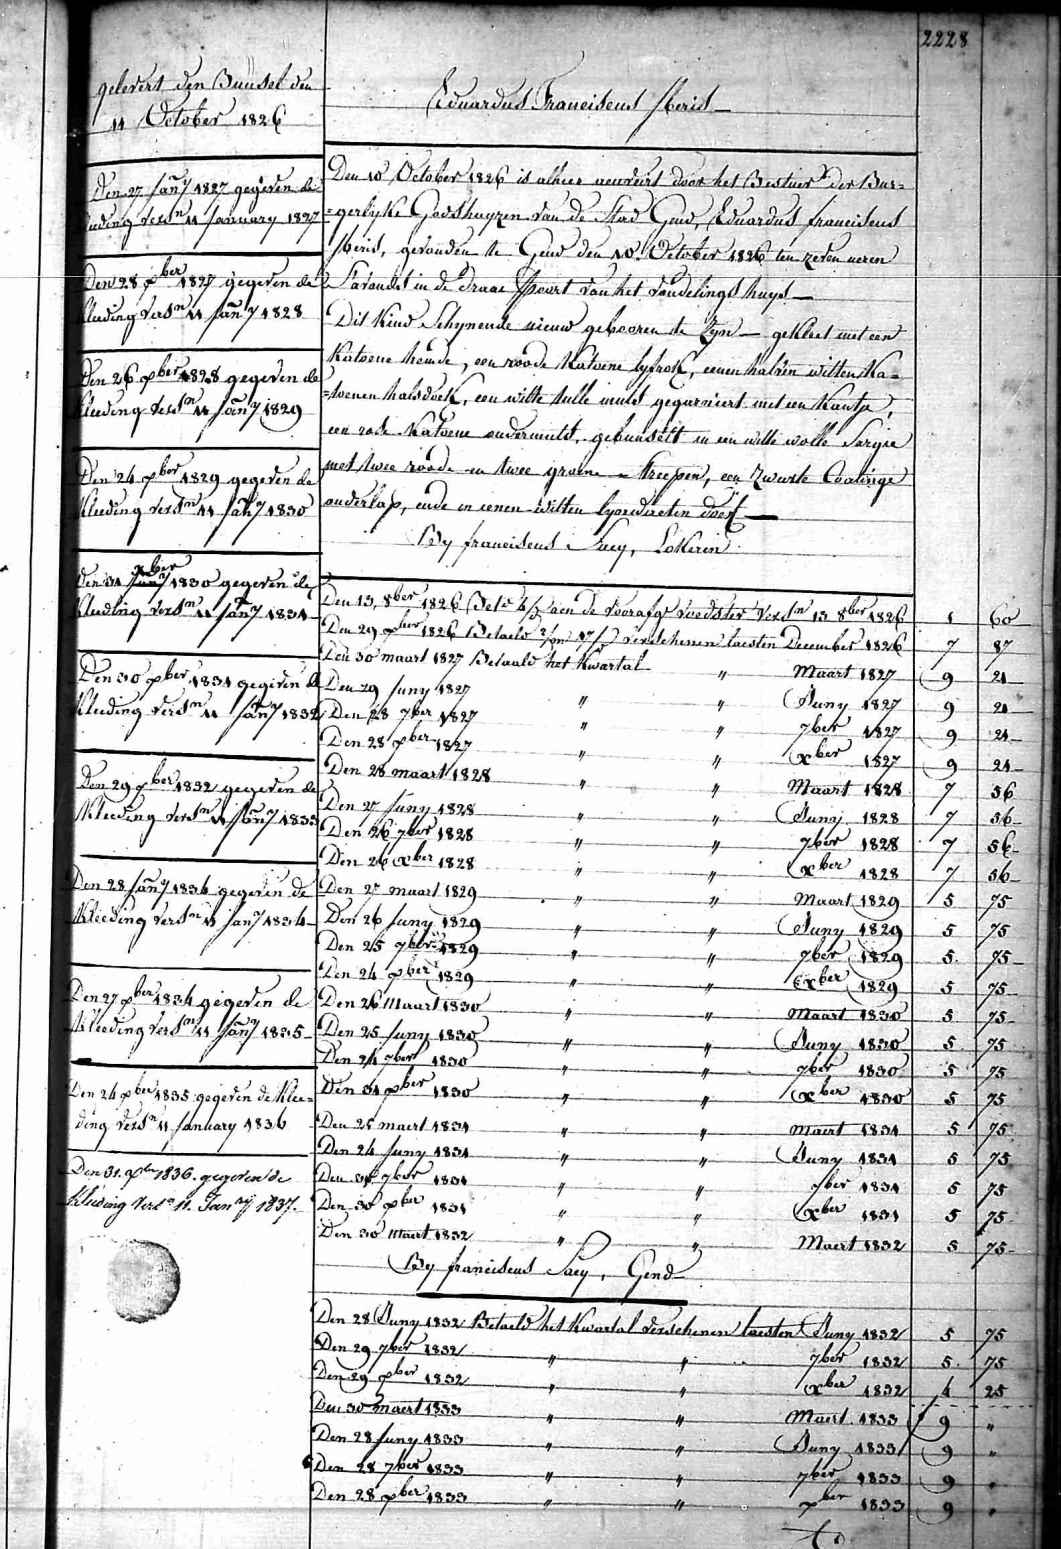 2228
gelevert den Bunsel den
11 October 1826
Den 27 Jañy 1827 gegeven de
kleding versn 11 January 1827
Den 28 xber 1827 gegeven de
kleeding versn 11 Jañy 1828
Den 26 xber 1828 gegeven de
kleeding versn 11 Jañy 1829
Den 24 xber 1829 gegeven de
kleeding versn 11 Jañy 1830
Den 31 xber 1830 gegeven de
kleeding versn 11 Jañy 1831
Den 30 xber 1831 gegeven de
kleeding versn 11 Jañy 1832
Den 29 xber 1832 gegeven de
kleeding versn 11 Jañy 1833
Den 28 Jañy 1834 gegeven de
kleeding versn 11 Jany 1834
Den 27 xber 1834 gegeven de
kleeding versn 11 Jañy 1835
Den 24 xber 1835 gegeven de klee=
ding versn 11 January 1836
Den 31. xber 1836. gegeven de
kleeding versn 11. Janrij 1837.
Eduardus Franciscus Meris
Den 10 October 1826 is alhier aenveirt door het Bestuer der Bur=
=gerlyke Godshuyzen van de Stad Gend, Eduardus franciscus
Meris, gevonden te Gend den 10 October 1826 ten zeven ueren
S'avonds in de draae Poort van het vondelings huys
Dit kind Schynende nieuw gebooren te Zyn gekleet met een
katoene hemde, een roode katoene lyfrok, eenen halven witten ka=
=toenen halsdoek, een witte tulle muts gegarniert met een kantje,
een rode katoene ondermuts, gebunselt in een witte wolle Sargie
met twee roode en twee groene Streepen, een Zwarte Coatinge
onderlap, ende in eenen witten lynwaeten doek
By franciscus Saey, Lokeren
Den 13, 8ber 1826 Bet aen de voorafge voedster versn 13 8ber 1826 1 60
Den 29 xber 1826 Betaelt verschenen laesten December 1826 7 87
Den 30 maart 1827 Betaald het Kwartal " Maart 1827 9 21
Den 29 Juny 1827 " " Juny 1827 9 21
Den 28 7ber 1827 " " 7ber 1827 9 21
Den 28 xber 1827 " " xber 1827 9 21
Den 28 maart 1828 " " Maart 1828 7 56
Den 27 Juny 1828 " " Juny 1828 7 56
Den 26 7ber 1828 " " 7ber 1828 7 56
Den 26 xber 1828 " " xber 1828 7 56
Den 27 maart 1829 " " Maart 1829 5 75
Den 26 Juny 1829 " " Juny 1829 5 75
Den 25 7ber 1829 " " 7ber 1829 5 75
Den 24 xber 1829 " " xber 1829 5 75
Den 26 Maart 1830 " " Maart 1830 5 75
Den 25 Juny 1830 " " Juny 1830 5 75
Den 24 7ber 1830 " " 7ber 1830 5 75
Den 31 xber 1830 " " xber 1830 5 75
Den 25 maert 1831 " " Maert 1831 5 75
Den 24 Juny 1831 " " Juny 1831 5 75
Den 7ber 1831 " " 7ber 1831 5 75
Den 30 xber 1831 " " xber 1831 5 75
Den 30 Maert 1832 " " Maert 1832 5 75
By franciscus Saey, Gend
Den 28 Juny 1832 Betaeld het Kwartal verschenen laesten Juny 1832 5 75
Den 29 7ber 1832 " " 7ber 1832 5 75
Den 29 xber 1832 " " xber 1832 4 25
Den 30 maert 1833 " " Maert 1833 9 "
Den 28 Juny 1833 " " Juny 1833 9 "
Den 28 7ber 1833 " " 7ber 1833 9 "
Den 28 xber 1833 " " xber 1833 9 "